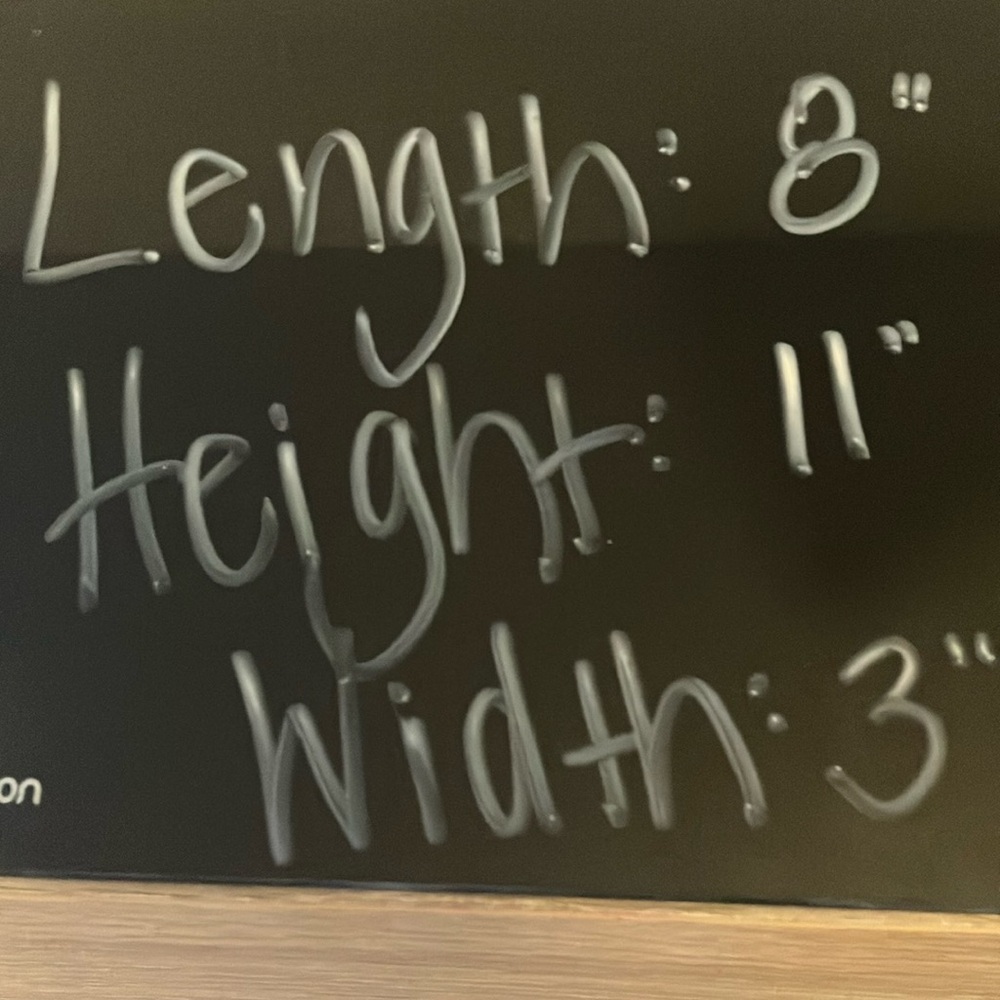 Length: 8"
Height: 11"
Width: 3"
on